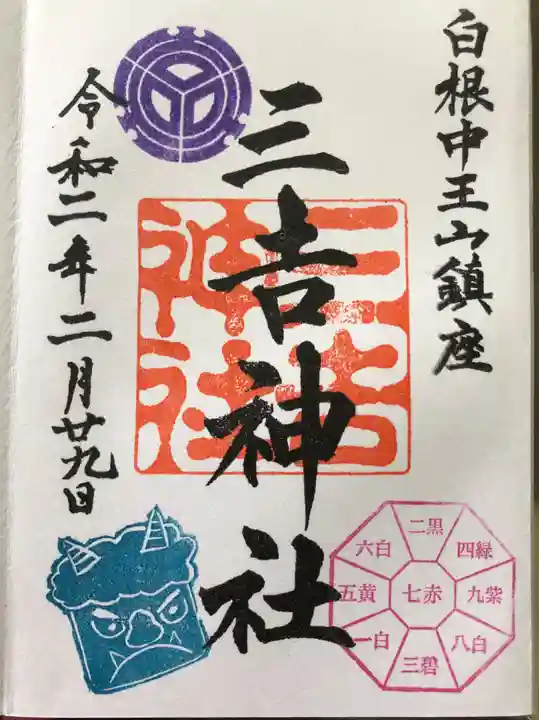 白根中王山鎮座
三吉神社
三吉神社
令和二年二月廿九日
六白
二黒
四緑
五黄
七赤
九紫
一白
三碧
八白